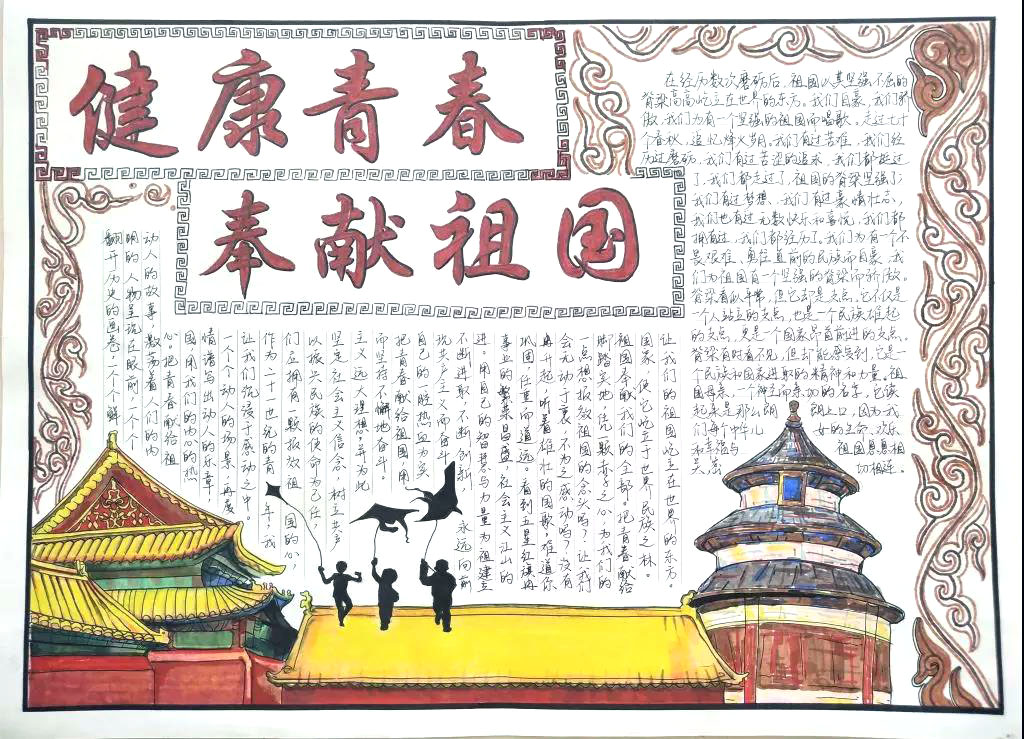 健康青春
奉献祖国
在经历数次磨砺后，祖国以其坚强不屈的
脊梁高高屹立在世界的东方。我们自豪，我们骄
傲，我们为有一个坚强的祖国而唱歌。走过七十
个春秋，追忆烽火岁月。我们有过苦难，我们经
历过磨砺，我们有过苦涩的追求，我们都挺过
了，我们都走过了，祖国的脊梁坚强了，
我们有过梦想、我们有过豪情壮志，
我们也有过无数快乐和喜悦，我们都
拥有过，我们都经历了。我们为有一个不
畏艰难、勇往直前的民族而自豪，我
们为祖国有一个坚强的脊梁而骄傲。
脊梁看似平常，但它却是支点，它不仅是
一个人站立的支点，也是一个民族雄起
的支点，更是一个国家昂首前进的支点。
脊梁有时看不见，但却能感受到，它是一
个民族和国家进取的精神和力量。祖
国母亲，一个神圣而亲切的名字，它读
起来是那么朗朗上口，因为我
们每个中华儿女的生命、欢乐
和幸福与祖国息息相
关，切相连。
翻开历史的画卷，一个个鲜
明的人物呈现在眼前，一个个
动人的故事，激荡着人们的内
心。把青春献给祖
国，用我们的内心的热
情谱写出动人的乐章，
一个个动人的场景，再度
让我们沉浸于感动之中。
作为二十一世纪的青年，我
们应拥有一颗报效祖国的心，
以振兴民族的使命为己任，
坚定社会主义信念，树立共产
主义远大理想，并为此
而坚持不懈地奋斗。
把青春献给祖国，用
自己的一腔热血为实
现共产主义而奋斗
不断进取，不断创新，永远向前
进。用自己的智慧与力量为祖建立
事业的繁荣昌盛，社会主义江山的
巩固，任重而道远。看到五星红旗冉
冉升起，听着雄壮的国歌，难道你
会无动于衷，不为之感动吗？没有
一点想报效祖国的念头吗？让我们
脚踏实地，锐意赤子之心，为我们的
祖国奉献我们的全部，把青春献给
国家，使它屹立于世界民族之林。
让我们的祖国屹立在世界的东方。